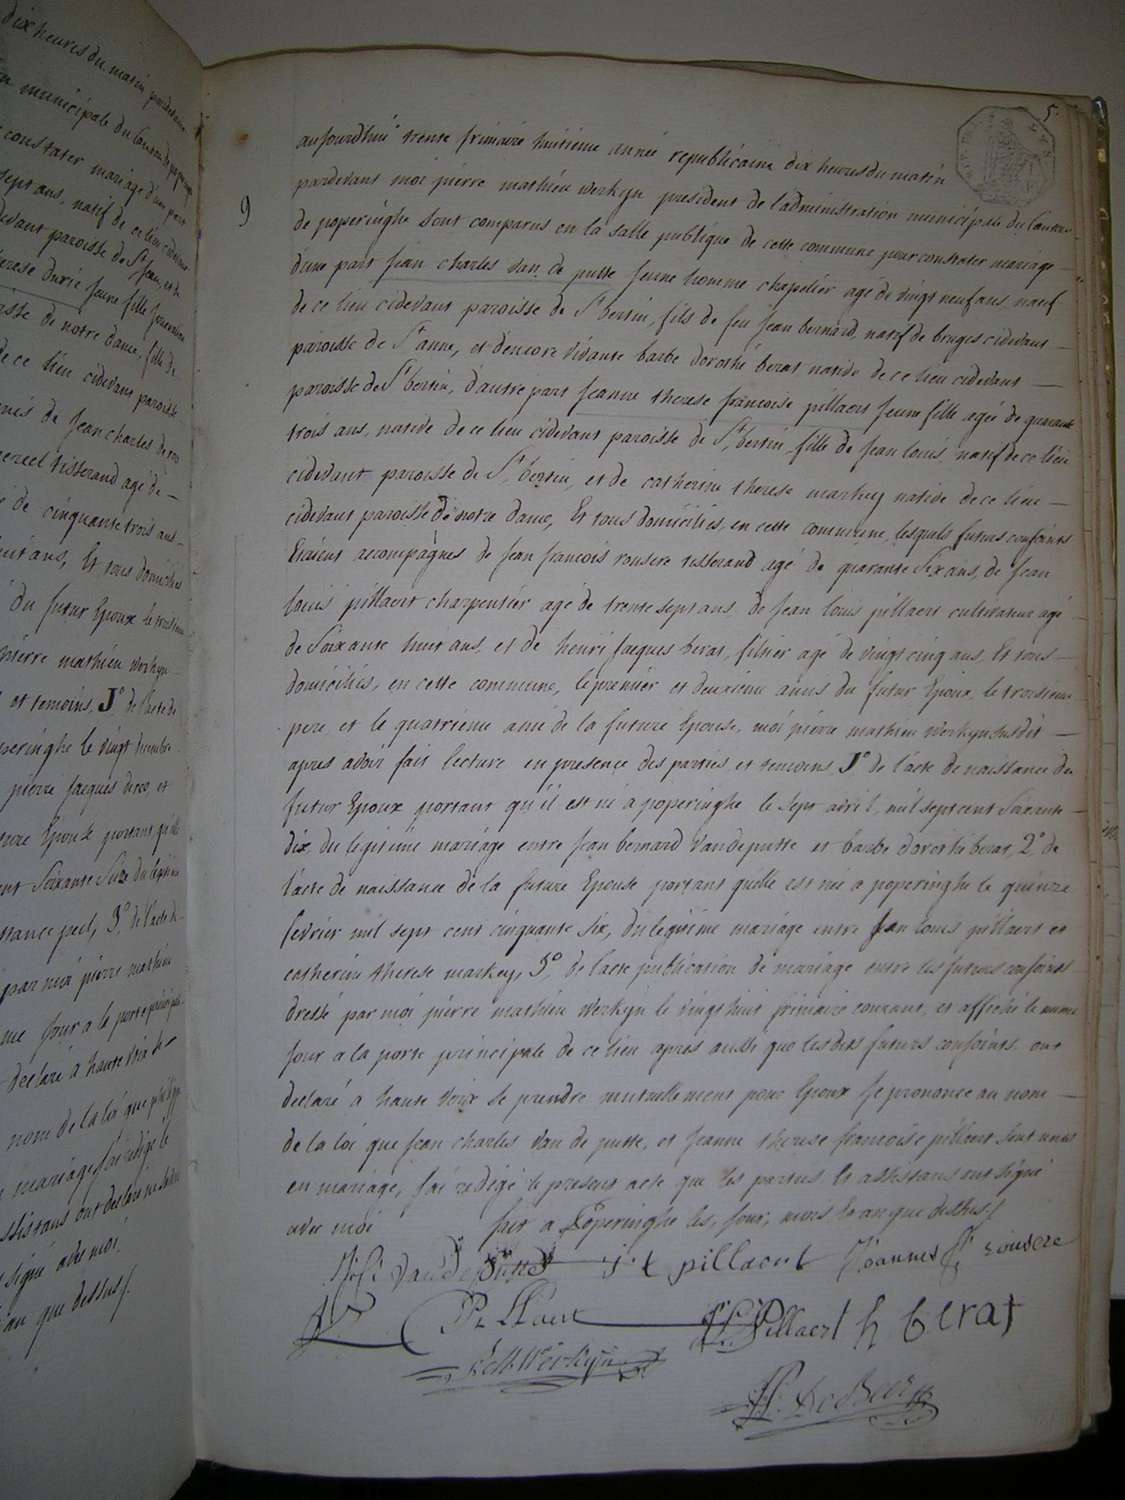 dix heures du matin pardevant
municipale du Canton de poperinghe
constater mariage d'une part
sept ans, natif de ce lieu cidevant
devant paroisse de St Jean, et de
therese durié jeune fille
paroisse de notre dame, fille de
de ce lieu cidevant paroisse
de Jean charles de
tisserand agé de
de cinquante trois ans
huit ans, Et tous domiciliés
du futur Epoux le troisieme
pierre mathieu werkyn
et temoins, J.º de l'acte de
poperinghe le vingt
pierre Jacques et
future Epouse portant qu'elle
cent Soixante Seize du legitime
constance peel, 3.º de l'acte de
par moi pierre mathieu
me jour a la porte principale
declaré à haute voix de
nom de la loi que philippe
mariage, j'ai redigé le
assistans ont declaré ne
signé avec moi.
an que dessus /.
5.
9
aujourdhui trente frimaire huitieme année republicaine dix heures du matin
pardevant moi pierre mathieu werkyn president de l'administration municipale du Canton
de poperinghe sont comparus en la salle publique de cette commune pour constater mariage
dune part jean charles van de putte jeune homme chapelier agé de vingt neuf ans, natif
de ce lieu cidevant paroisse de St bertin, fils de feu jean bernard, natif de bruges cidevant
paroisse de St anne, et d'encore vivante barbe dorothé berat native de ce lieu cidevant
paroisse de St bertin, d'autre part jeanne therese françoise pillaert jeune fille agée de quarante
trois ans, native de ce lieu cidevant paroisse de St bertin, fille de jean louis, natif de ce lieu
cidevant paroisse de St bertin, et de catherine therese markey native de ce lieu
cidevant paroisse de notre dame, Et tous domiciliés, en cette commune, lesquels futurs conjoints
Etaient accompagnés de jean françois rousere tisserand agé de quarante Six ans, de jean
louis pillaert charpentier agé de trente sept ans, de jean louis pillaert cultivateur agé
de Soixante huit ans, et de henri jacques berat, filtier agé de vingt cinq ans, Et tous
domiciliés, en cette commune, le premier et deuxieme amis du futur Epoux, le troisieme
pere, et le quatrieme ami de la future Epouse, moi pierre mathieu werkyn susdit
apres avoir fait lecture en presence des parties, et temoins J.º de l'acte de naissance du
futur Epoux portant qu'il est né a poperinghe le sept avril, mil sept cent Soixante
dix du legitime mariage entre jean bernard Vandeputte et barbe dorothé berat, 2.º de
l'acte de naissance de la future Epouse portant quelle est née a poperinghe le quinze
fevrier mil sept cent cinquante Six, du legitime mariage entre jean louis pillaert et
catherine therese markey, 3.º de l'acte publication de mariage entre les futurs conjoints
dressé par moi pierre mathieu werkyn le vingt huit frimaire courant, et affiché le meme
jour a la porte principale de ce lieu apres aussi que lesdits futurs conjoints ont
declaré à haute voix se prendre mutuellement pour Epoux je prononce au nom
de la loi que jean charles van de putte, et jeanne therese françoise pillaert sont unis
en mariage, j'ai redigé le present acte que les parties et assistans ont signé
avec moi fait a Poperinghe les, jour, mois, et an que dessus /.
Vandeputte pillaert Joannes f. rousere
Pillaert pillaert h berat
P: M: Werkyn
De Beer